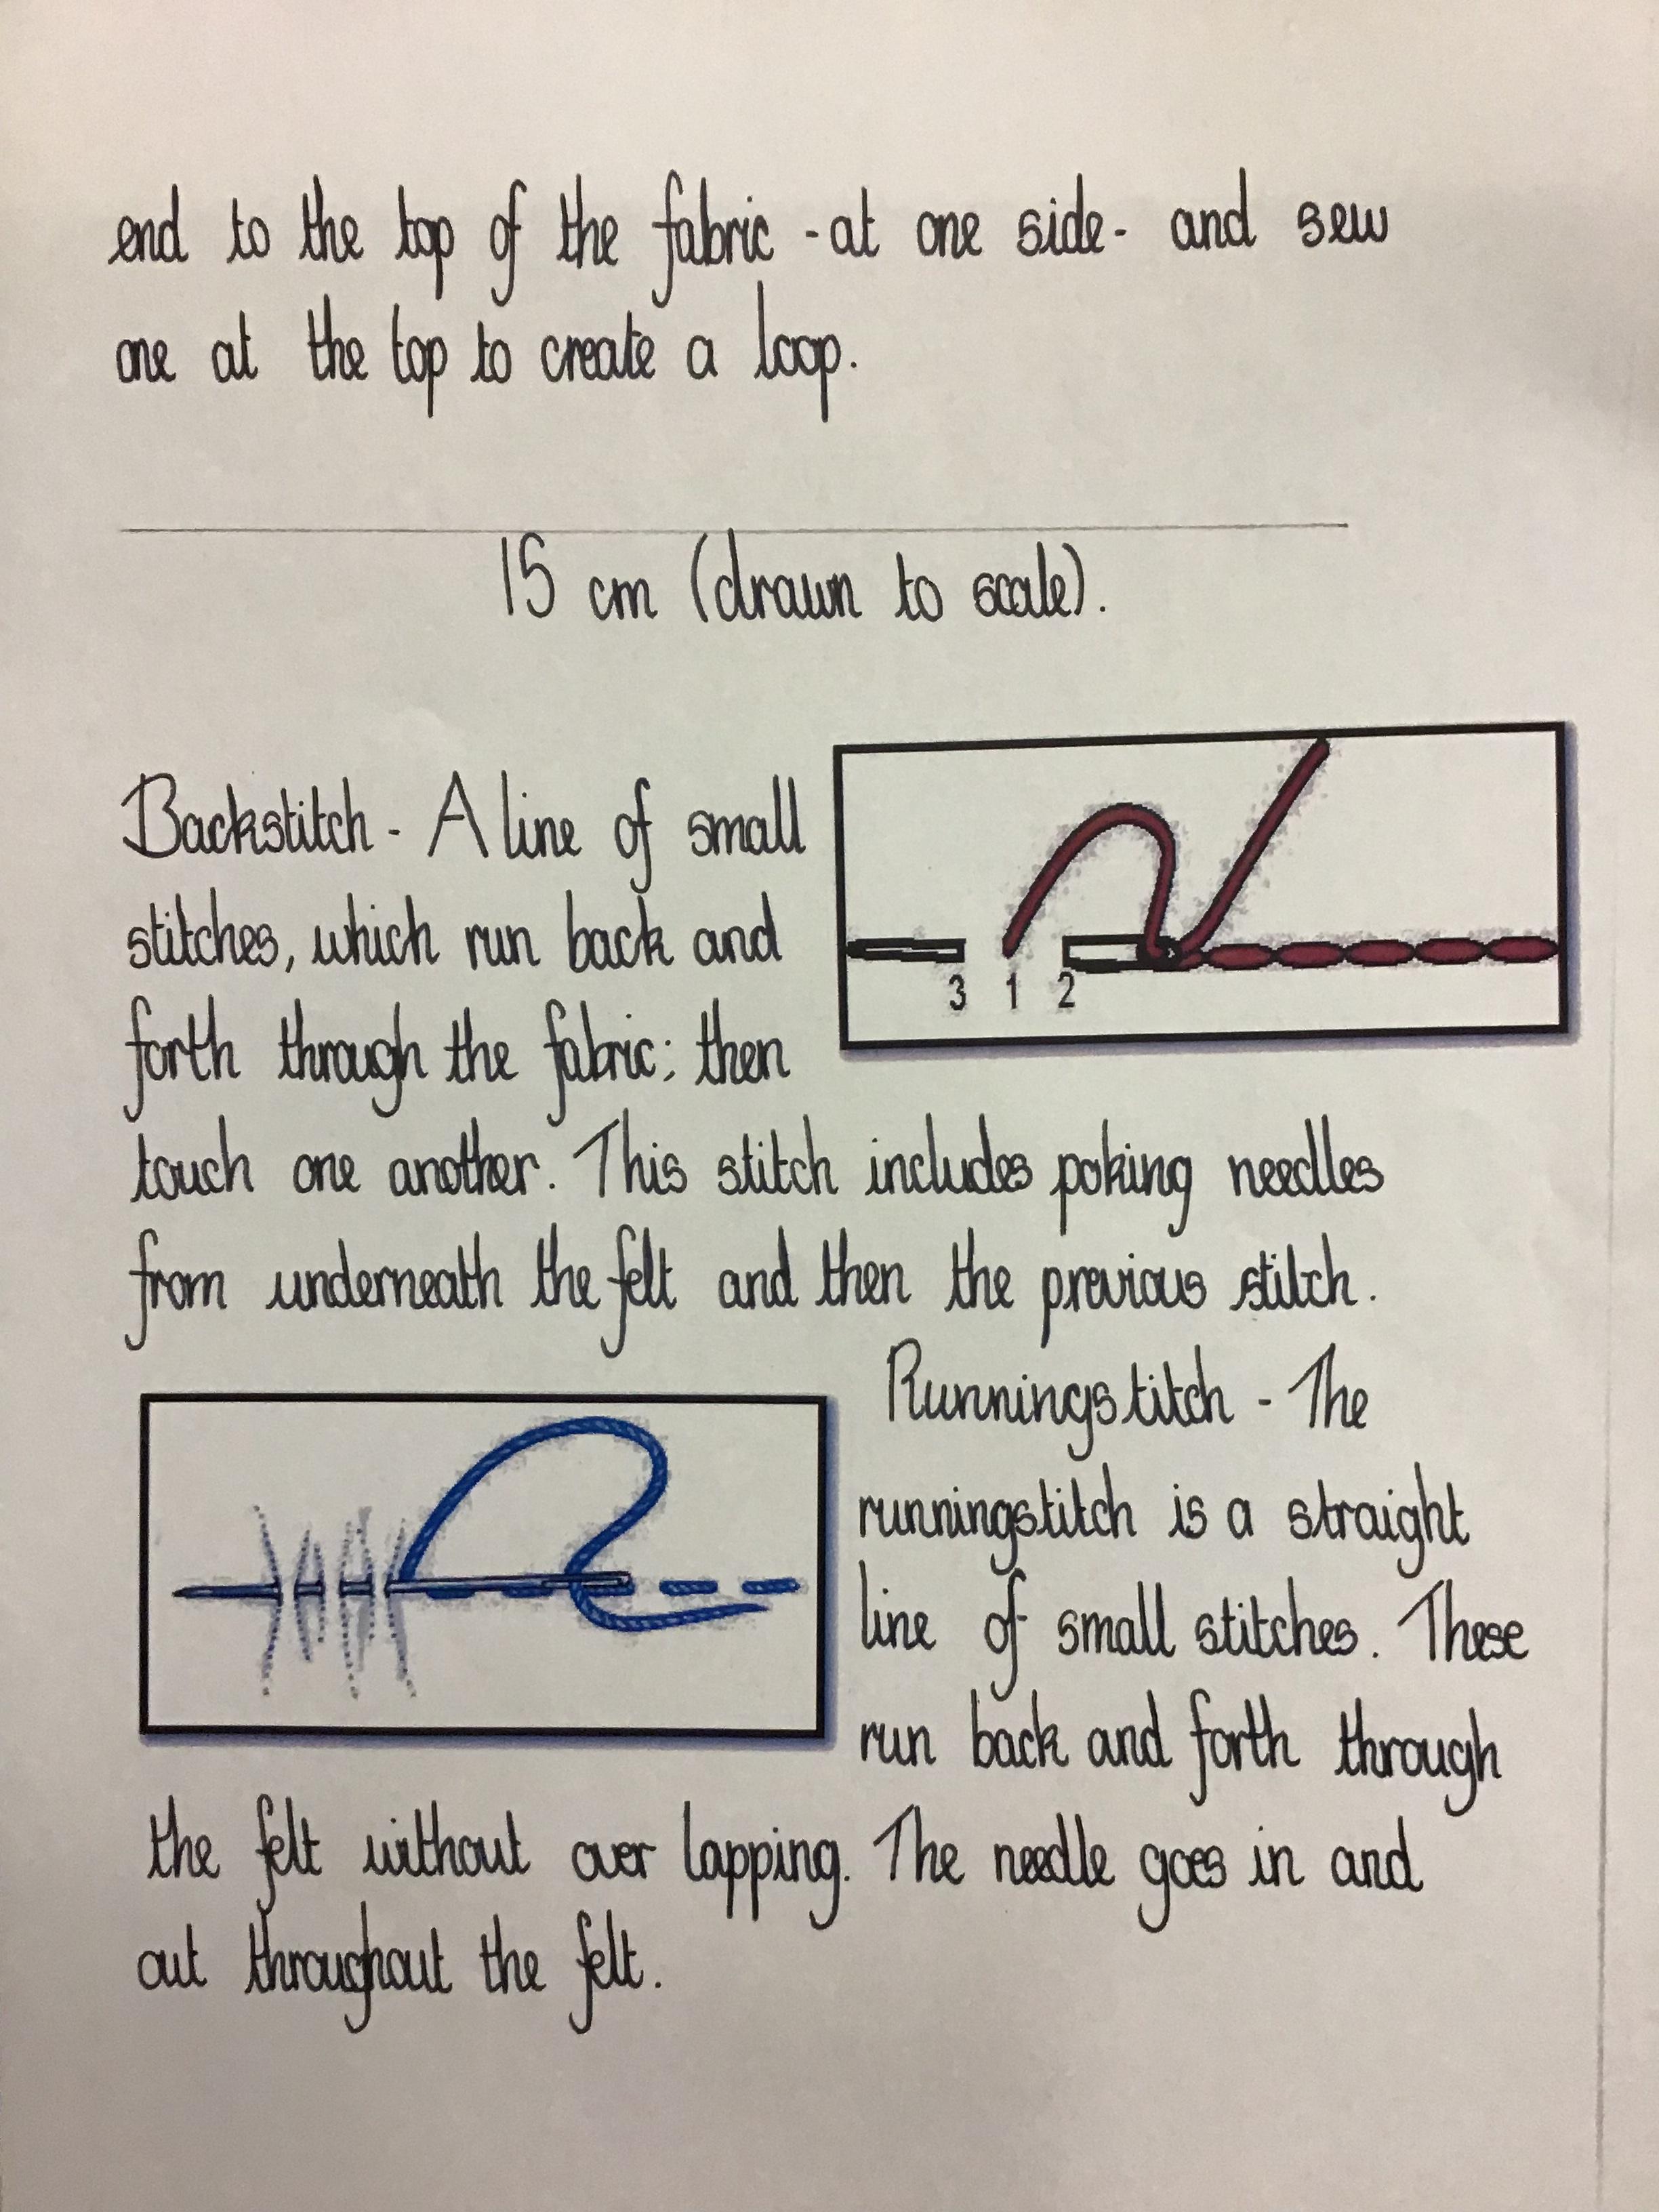 end to the top of the fabric -at one side- and sew
one at the top to create a loop.
15 cm (drawn to scale).
Backstitch - A line of small
stitches, which run back and
forth through the fabric; then
touch one another. This stitch includes poking needles
from underneath the felt and then the previous stitch.
3 1 2
Runningstitch - The
runningstitch is a straight
line of small stitches. These
run back and forth through
the felt without over lapping. The needle goes in and
out throughout the felt.